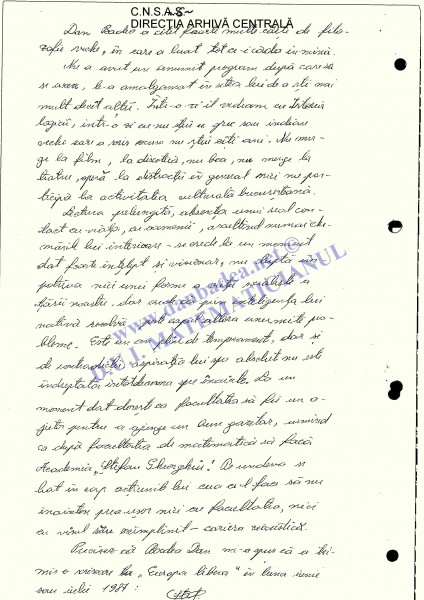 C.N.S.A.S.
DIRECŢIA ARHIVĂ CENTRALĂ
-8-
Dan Badea a citit foarte multe cărţi de filo-
zofie veche, în care a luat tot ce-i cădea în mînă.
Nu a avut un anumit program după care să
se axeze, le-a amalgamat în ideea lui de a şti mai
mult decît alţii. Într-o zi îl vedeam cu Istoria
logicii, într-o zi cu nu ştiu ce grec sau indian
vechi care a scris acum nu ştiu cîţi ani. Nu mer-
ge la film, la discotecă, nu bea, nu merge la
teatru, operă la distracţii în general nici nu par-
ticipă la activitatea culturală bucureşteană.
Lectura prelungită, absenţa unui real con-
tact cu viaţa, cu oamenii, ascultînd numai che-
mările lui interioare - se crede la un moment
dat foarte înţelept şi vizionar, nu luptă îm-
potriva nici unei forme a vieţii socialiste a
ţării noastre, dar crede că prin inteligenţa lui
nativă rezolvă altora anumite pro-
bleme. Este un om de temperament, dar şi
de contradicţii, aspiraţia lui spre absolut nu este
îndreptată întotdeauna spre înainte. La un
moment dat doreşte ca facultatea să fie un a-
jutor pentru a ajunge un bun gazetar, urmînd
ca după facultatea de matematică să facă
Academia „Ştefan Gheorghiu". Pe undeva se
bat în cap acţiunile lui ceea ce îl face să nu
înainteze prea uşor nici cu facultatea, nici
cu visul său neîmplinit - cariera ziaristică.
Precizez că Badea Dan mi-a spus că a tri-
mis o scrisoare la „Europa liberă" în luna iunie
sau iulie 1987.
www.danbadea.net ©
D.U.I. MATEMATICIANUL